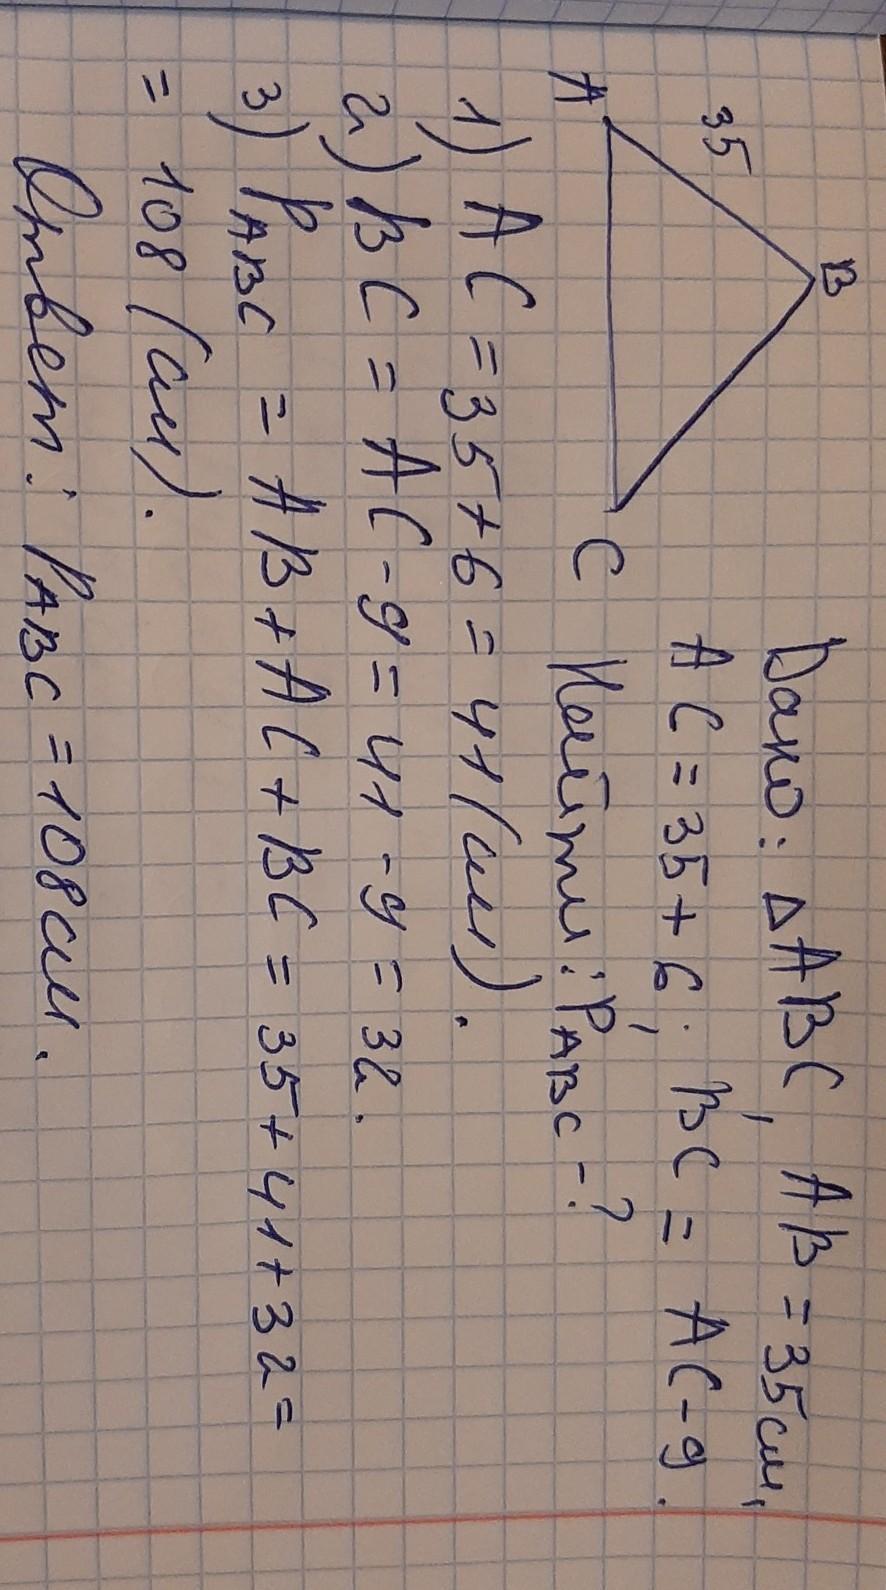 B
35
A
C
Дано: △ABC, AB = 35см,
AC = 35 + 6; BC = AC - 9.
Найти: P ABC - ?
1) AC = 35 + 6 = 41 (см).
2) BC = AC - 9 = 41 - 9 = 32.
3) P ABC = AB + AC + BC = 35 + 41 + 32 =
= 108 (см).
Ответ: P ABC = 108 см.